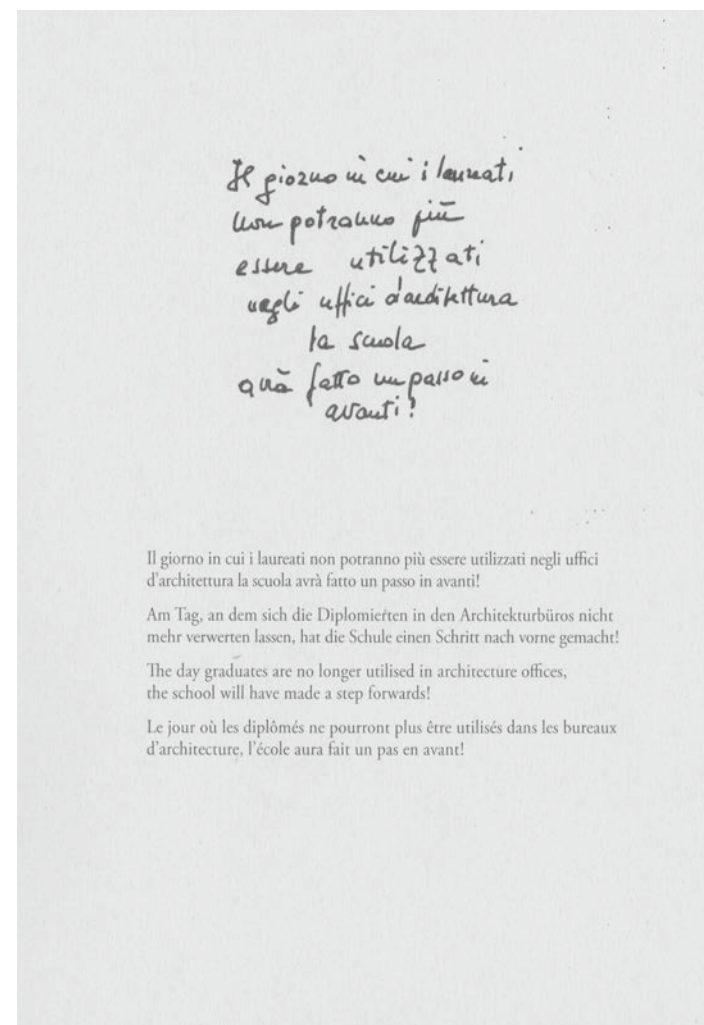 Il giorno in cui i laureati
non potranno più
essere utilizzati
negli uffici d'architettura
la scuola
avrà fatto un passo in
avanti!
Il giorno in cui i laureati non potranno più essere utilizzati negli uffici
d'architettura la scuola avrà fatto un passo in avanti!
Am Tag, an dem sich die Diplomierten in den Architekturbüros nicht
mehr verwerten lassen, hat die Schule einen Schritt nach vorne gemacht!
The day graduates are no longer utilised in architecture offices,
the school will have made a step forwards!
Le jour où les diplômés ne pourront plus être utilisés dans les bureaux
d'architecture, l'école aura fait un pas en avant!